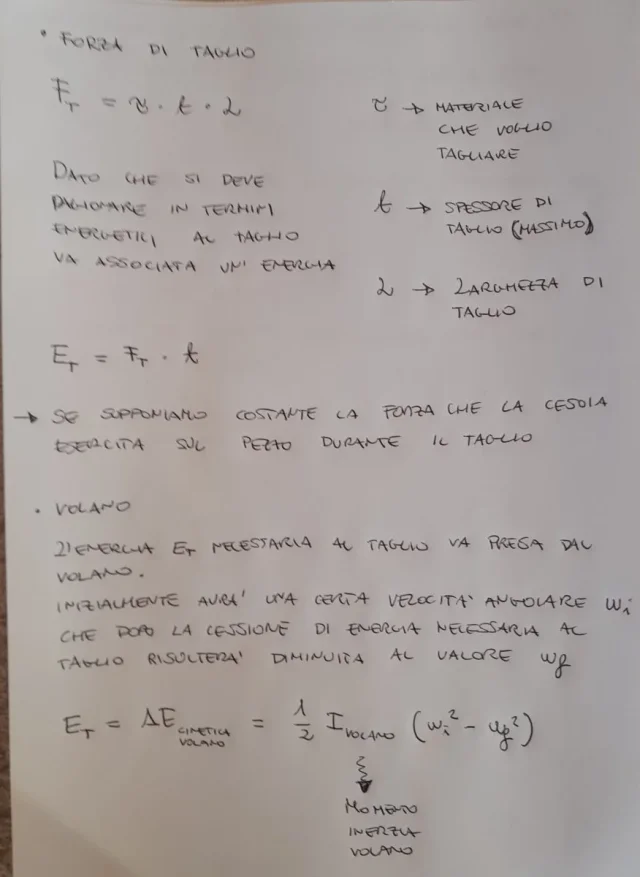 • FORZA DI TAGLIO
F_T = τ · t · L
τ → MATERIALE
CHE VOGLIO
TAGLIARE
t → SPESSORE DI
TAGLIO (MASSIMO)
L → LARGHEZZA DI
TAGLIO
DATO CHE SI DEVE
RAGIONARE IN TERMINI
ENERGETICI AL TAGLIO
VA ASSOCIATA UN' ENERGIA
E_T = F_T · t
→ SE SUPPONIAMO COSTANTE LA FORZA CHE LA CESOIA
ESERCITA SUL PEZZO DURANTE IL TAGLIO
• VOLANO
L'ENERGIA E_T NECESSARIA AL TAGLIO VA PRESA DAL
VOLANO.
INIZIALMENTE AVRA' UNA CERTA VELOCITA' ANGOLARE ω_i
CHE DOPO LA CESSIONE DI ENERGIA NECESSARIA AL
TAGLIO RISULTERA' DIMINUITA AL VALORE ω_f
E_T = ΔE CINETICA VOLANO = 1/2 I_VOLANO (ω_i² - ω_f²)
MOMENTO
INERZIA
VOLANO